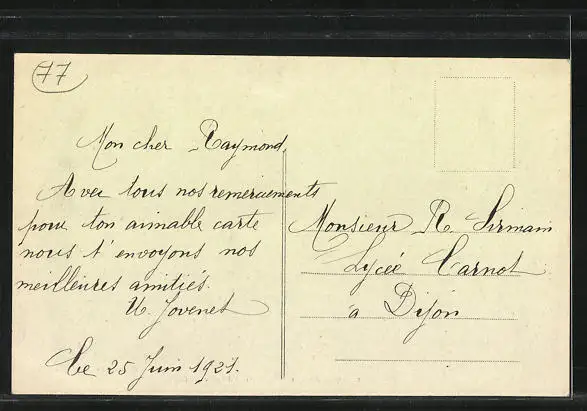 77
Mon cher Raymond,
Avec tous nos remerciements
pour ton aimable carte
nous t'envoyons nos
meilleures amitiés.
Jovenet
Le 25 Juin 1921.
Monsieur R. Sirmain
Lycée Carnot
à Dijon